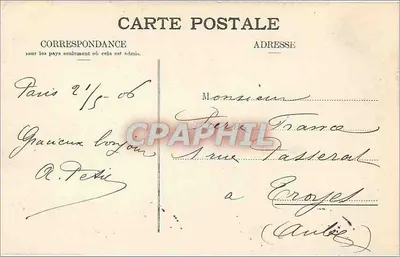 CARTE POSTALE
CORRESPONDANCE
pour les pays seulement où cela est admis.
ADRESSE
Paris 21/5-06
Gracieux bonjour
A. Petit
Monsieur
France
1 rue Passerat
à Troyes
(Aube)
CPAPHIL